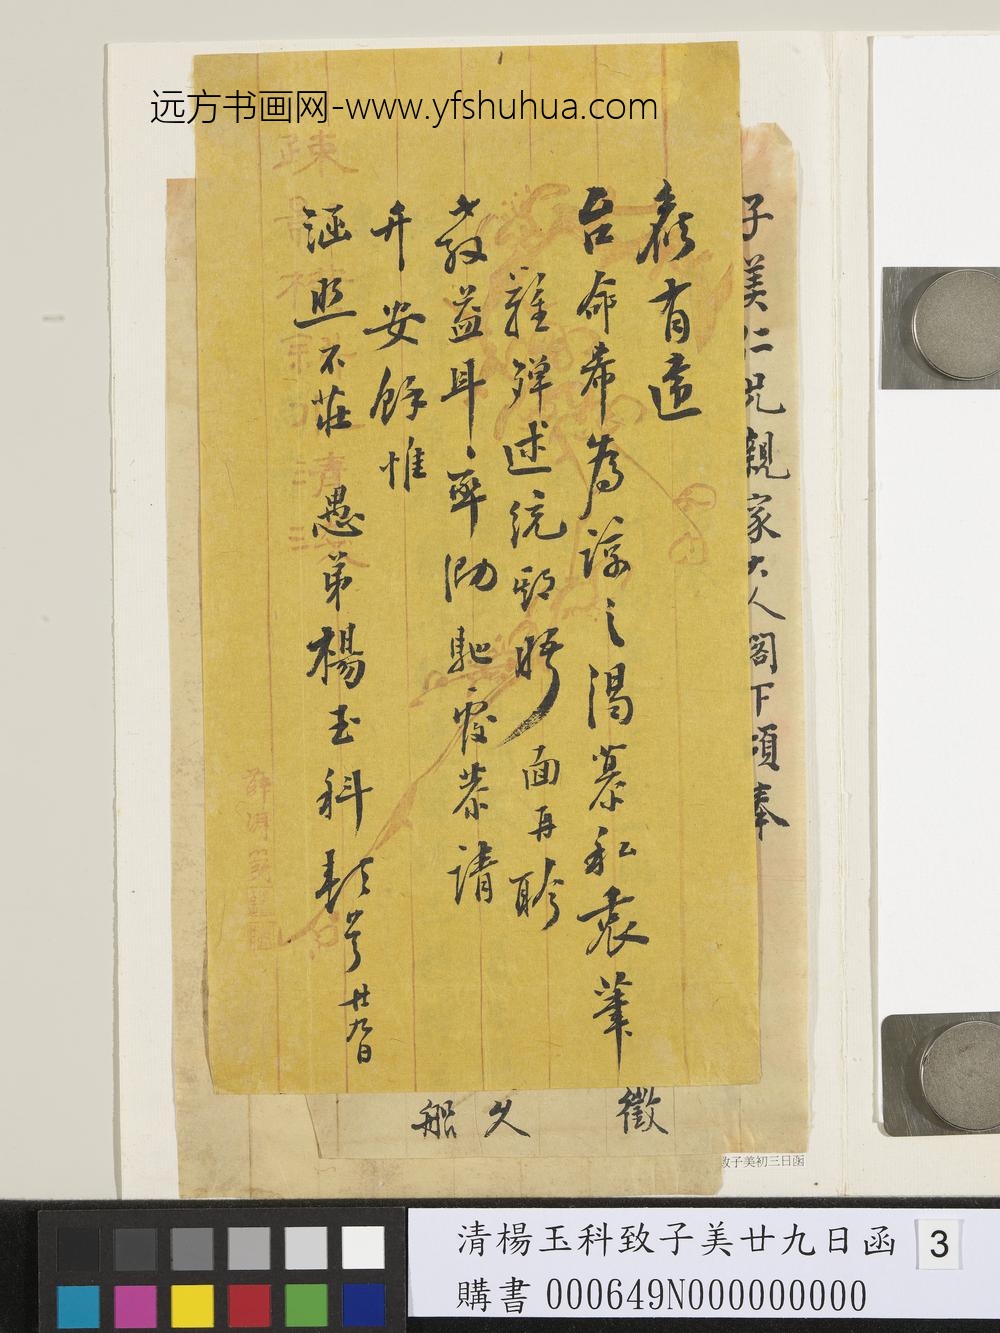 远方书画网-www.yfshuhua.com
子美仁兄親家大人閣下頃奉
有違
台命希為諒之渴慕私衷筆
難殫述統邵晤面再聆
教益耳率泐馳覆恭請
升安餘惟
涵照不莊愚弟楊玉科頓首廿九日
疎
清
徵
久
船
致子美初三日函
清楊玉科致子美廿九日函
3
購書 000649N000000000